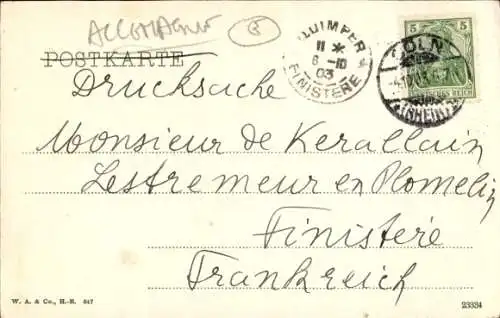 ALLEMAGNE
POSTKARTE
QUIMPER
11 *
6 -10
03
FINISTERE
5 5
CÖLN
Drucksache
Monsieur de Kerallain
Lestremeur en Plomelin
Finistere
Frankreich
W. A. & Co., H.-B. 847
23334